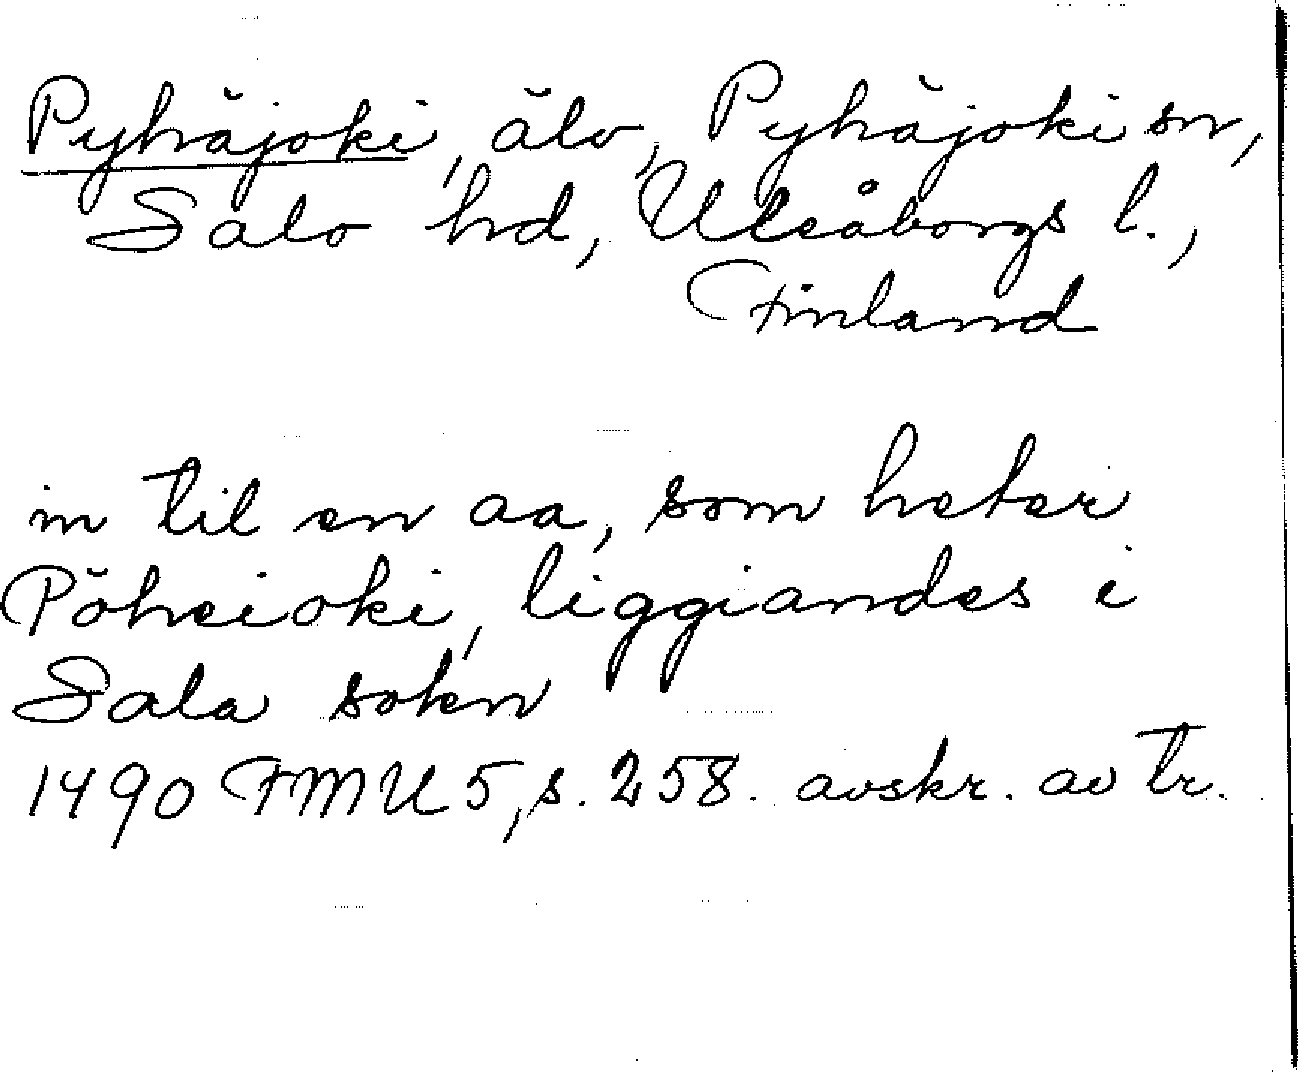 Pyhäjoki, älv, Pyhäjoki sn,
Salo hd, Uleåborgs l.,
Finland
in til en aa, som heter
Pöheioki, liggiandes i
Sala soken
1490 FMU 5, s. 258. avskr. av tr.